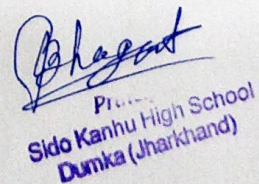 Bhagat
Sido Kanhu High School
Dumka (Jharkhand)